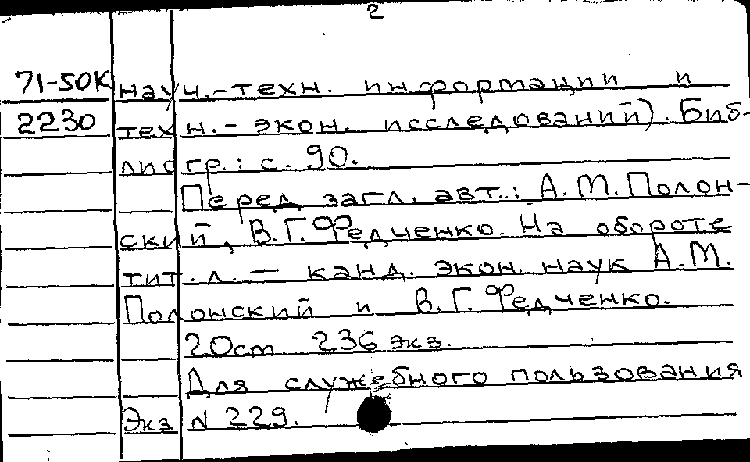 2
71-50К науч.-техн. информации и
2230 техн.-экон. исследований). Биб-
лиогр.: с. 90.
Перед загл. авт.: А.М.Полон-
ский, В.Г.Федченко. На обороте
тит.л. — канд. экон. наук А.М.
Полонский и В.Г.Федченко.
20см 236 экз.
Для служебного пользования
Экз N 229.